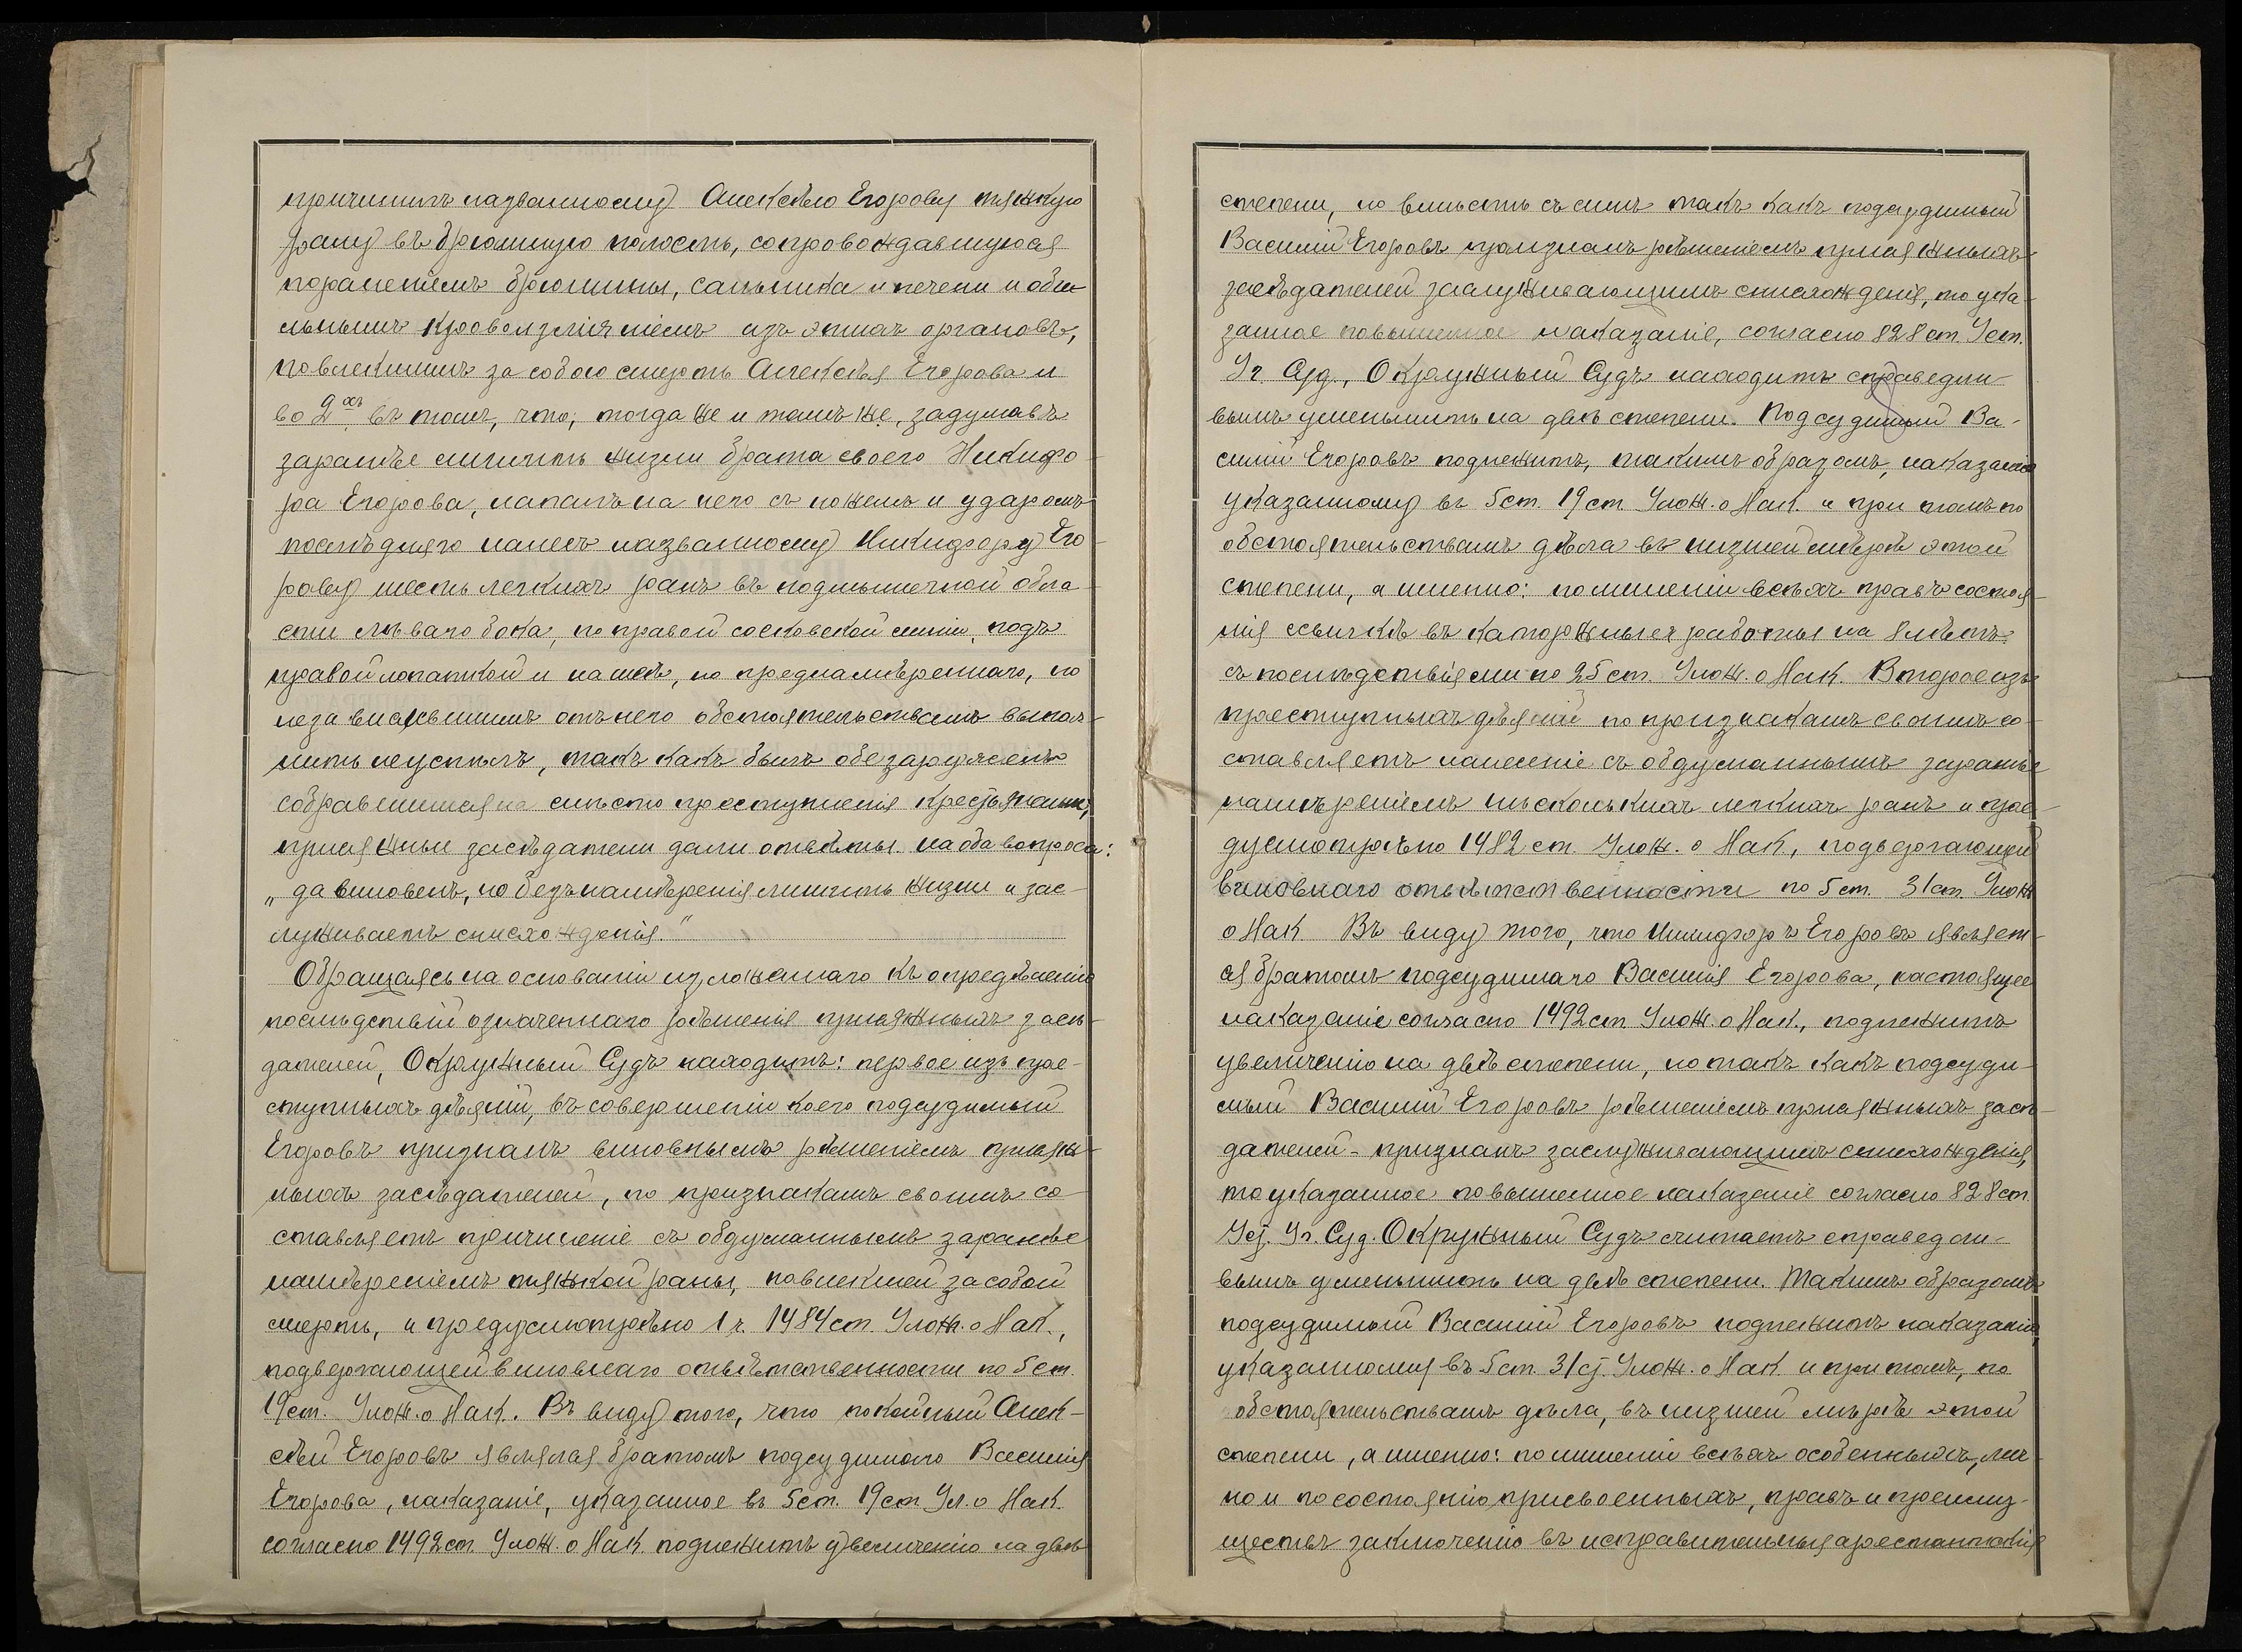 причинилъ названному Алексѣю Егорову тяжкую
рану въ брюшную полость, сопровождавшуюся
пораненіемъ брюшины, сальника и печени и оби-
льнымъ кровоизліяніемъ изъ этихъ органовъ,
повлекшимъ за собою смерть Алексѣя Егорова и
во 2хъ въ томъ, что, тогда же и тамъ же, задумавъ
заранѣе лишить жизни брата своего Никифо-
ра Егорова, напалъ на него съ ножемъ и ударомъ
послѣдняго нанесъ названному Никифору Его-
рову шесть легкихъ ранъ въ подмышечной обла-
сти лѣваго бока, по правой сосковской линіи, подъ
правой лопаткой и на шеѣ, но преднамѣреннаго, по
независѣвшимъ отъ него обстоятельствамъ выпол-
нить не успѣлъ, такъ какъ былъ обезаруженъ
собравшимися на мѣсто преступленія крестьянами,
присяжные засѣдатели дали отвѣты на оба вопроса:
„да виновенъ, но безъ намѣренія лишить жизни и зас-
луживаетъ снисхожденія."
Обращаясь на основаніи изложеннаго къ опредѣленію
послѣдствій означеннаго рѣшенія присяжныхъ засѣ-
дателей, Окружный Судъ находитъ: первое изъ пре-
ступныхъ дѣяній, въ совершеніи коего подсудимый
Егоровъ признанъ виновнымъ рѣшеніемъ присяж-
ныхъ засѣдателей, по признакамъ своимъ со-
ставляетъ причиненіе съ обдуманнымъ заранѣе
намѣреніемъ тяжкой раны, повлекшей за собой
смерть, и предусмотрѣно 1 ч. 1484 ст. Улож. о Нак.,
подвергающей виновнаго отвѣтственности по 5 ст.
19 ст. Улож. о Нак. Въ виду того, что покойный Алек-
сѣй Егоровъ являлся братомъ подсудимаго Василія
Егорова, наказаніе, указанное въ 5 ст. 19 ст. Ул. о Нак.
согласно 1492 ст. Улож. о Нак. подлежитъ увеличенію на двѣ
степени, но вмѣстѣ съ симъ такъ какъ подсудимый
Василій Егоровъ признанъ рѣшеніемъ присяжныхъ
засѣдателей заслуживающимъ снисхожденія, то ука-
занное повышенное наказаніе, согласно 828 ст. Уст.
Уг. Суд., Окружный Судъ находитъ справедли-
вымъ уменьшить на двѣ степени. Подсудимый Ва-
силій Егоровъ подлежитъ, такимъ образомъ, наказанію
указанному въ 5 ст. 19 ст. Улож. о Нак. и при томъ по
обстоятельствамъ дѣла въ низшей мѣрѣ этой
степени, а именно: по лишеніи всѣхъ правъ состоя-
нія ссылкѣ въ каторжныя работы на 8 лѣтъ
съ послѣдствіями по 25 ст. Улож. о Нак. Второе изъ
преступныхъ дѣяній по признакамъ своимъ со-
ставляетъ нанесеніе съ обдуманнымъ заранѣе
намѣреніемъ нѣсколькихъ легкихъ ранъ и пре-
дусмотрѣно 1482 ст. Улож. о Нак., подвергающей
виновнаго отвѣтственности по 5 ст. 31 ст. Улож
о Нак Въ виду того, что Никифоръ Егоровъ являет-
ся братомъ подсудимаго Василія Егорова, настоящее
наказаніе согласно 1492 ст Улож. о Нак., подлежитъ
увеличенію на двѣ степени, но такъ какъ подсуди-
мый Василій Егоровъ рѣшеніемъ присяжныхъ засѣ-
дателей - признанъ заслуживающимъ снисхожденія,
то указанное повышенное наказаніе согласно 828 ст.
Уст. Уг. Суд. Окружный Судъ считаетъ справедли-
вымъ уменьшить на двѣ степени. Такимъ образомъ
подсудимый Василій Егоровъ подлежитъ наказанію,
указанному въ 5 ст. 31 ст. Улож. о Нак. и при томъ, по
обстоятельствамъ дѣла, въ низшей мѣрѣ этой
степени, а именно: по лишеніи всѣхъ особенныхъ, лич-
но и по состоянію присвоенныхъ, правъ и преиму-
ществъ заключенію въ исправительныя арестантскія